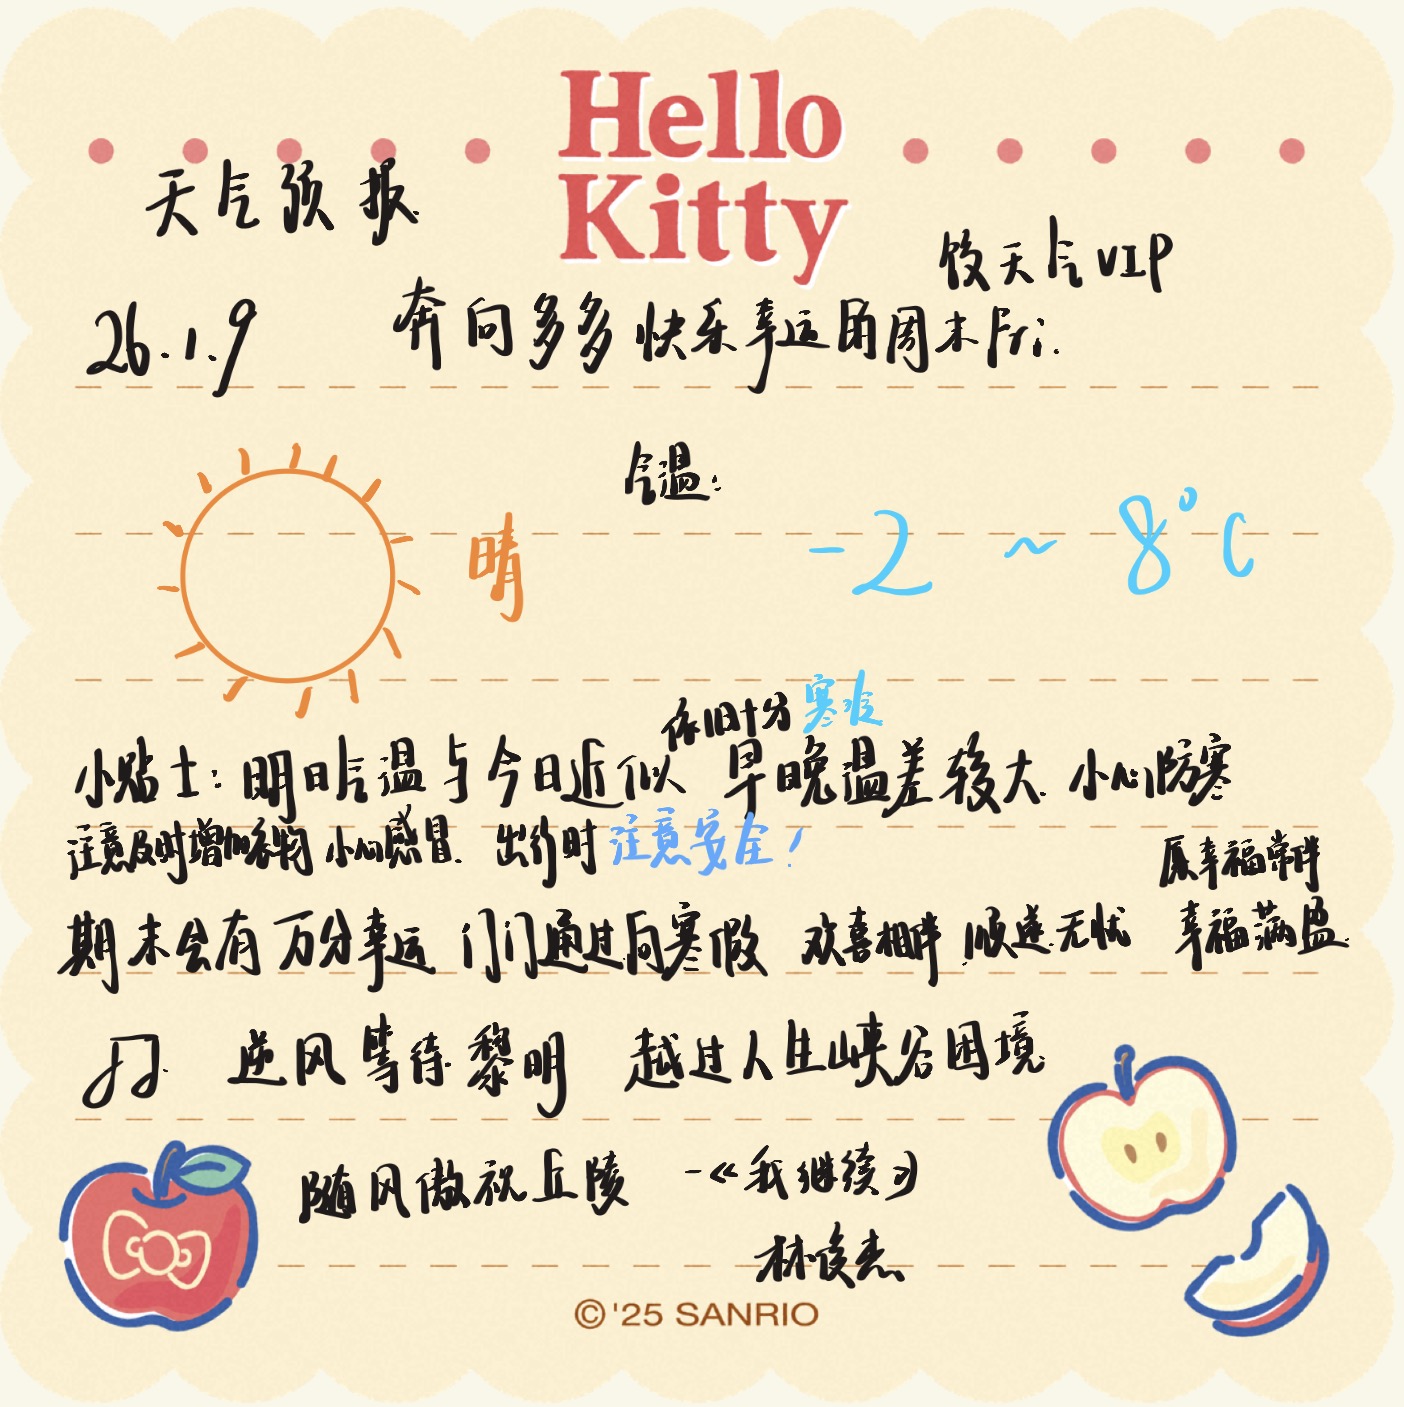 Hello
Kitty
天气预报
饺天气VIP
26.1.9 奔向多多快乐幸运的周末Fri.
气温:
晴 -2 ~ 8°C
依旧十分寒冷
小贴士: 明日气温与今日近似 早晚温差较大 小心防寒
注意及时增加衣物 小心感冒. 出行时 注意安全!
愿幸福常伴
期末会有万分幸运 门门通过向寒假 欢喜相伴 顺遂无忧 幸福满盈.
♫ 逆风等待黎明 越过人生峡谷困境
随风傲视丘陵 —《我继续》
林俊杰
© '25 SANRIO